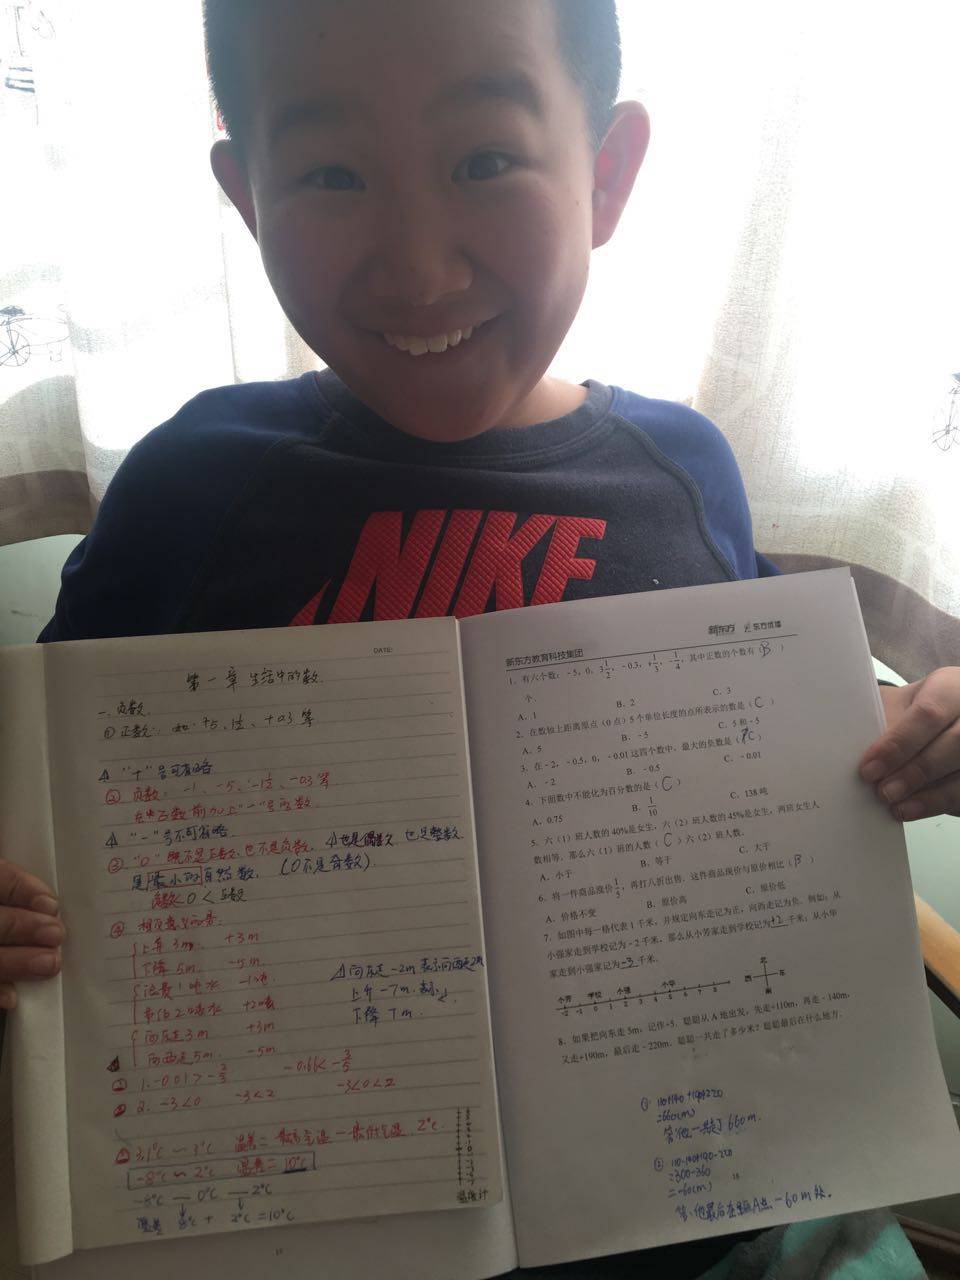 NIKE
DATE:
第一章 生活中的数
一、负数
①正数: 如:+5、1½、+0.3 等
"+"号可省略
② 负数: -1、-5、-1½、-0.3 等
在正数前加上"-"号的数
"-"号不可省略
③ "0"既不是正数,也不是负数,也是偶数,也是整数
是最小的自然数, (0不是奇数)
负数<0<正数
④ 相反意义的量:
上升 3m +3m
下降 5m -5m
浪费1吨水 -1吨
节约2吨水 +2吨
向东走3m +3m
向西走5m -5m
向东走-2m表示向西走2m
上升-7m表示
下降7m.
1. -0.01>-3/5 -0.61<-3/5
2. -3<0 -3<2 -3<0<2
3. 1℃~3℃ 温差=最高气温-最低气温 2℃
-8℃~2℃ 温差=10℃
-8℃ — 0℃ — 2℃
温差 8℃ + 2℃ =10℃
温度计
新东方教育科技集团
新东方 东方优播
1、有六个数:-5,0,3 1/2,-0.3,+1/3,-1/4,其中正数的个数有(B)
个.
A、1 B、2 C、3
2、在数轴上距离原点(0点)5个单位长度的点所表示的数是(C)
A、5 B、-5 C、5和-5
3、在-2,-0.5,0,-0.01这四个中,最大的负数是(C)
A、-2 B、-0.5 C、-0.01
4、下面数中不能化为百分数的是(C)
A、0.75 B、1/10 C、138吨
5、六(1)班人数的40%是女生,六(2)班人数的45%是女生,两班女生人
数相等,那么六(1)班的人数(C)六(2)班人数.
A、小于 B、等于 C、大于
6、将一件商品涨价1/5,再打八折出售,这件商品现价与原价相比(B)
A、价格不变 B、原价高 C、原价低
7、如图中每一格代表1千米,并规定向东走记为正,向西走记为负.例如:从
小强家走到学校记为-2千米,那么从小芳家走到学校记为+2千米;从小华
家走到小强家记为-3千米.
小芳 学校 小强 小华
-2 -1 0 1 2 3 4 5 6 7 8
北
西 东
南
8、如果把向东走5m,记作+5.聪聪从A地出发,先走+110m,再走-140m,
又走+190m,最后走-220m.聪聪一共走了多少米?聪聪最后在什么地方.
① 110+140+190+220
=660(m)
答:他一共走了660m.
② 110-140+190-220
=300-360
=-60(m)
答:他最后在距A点-60m处.